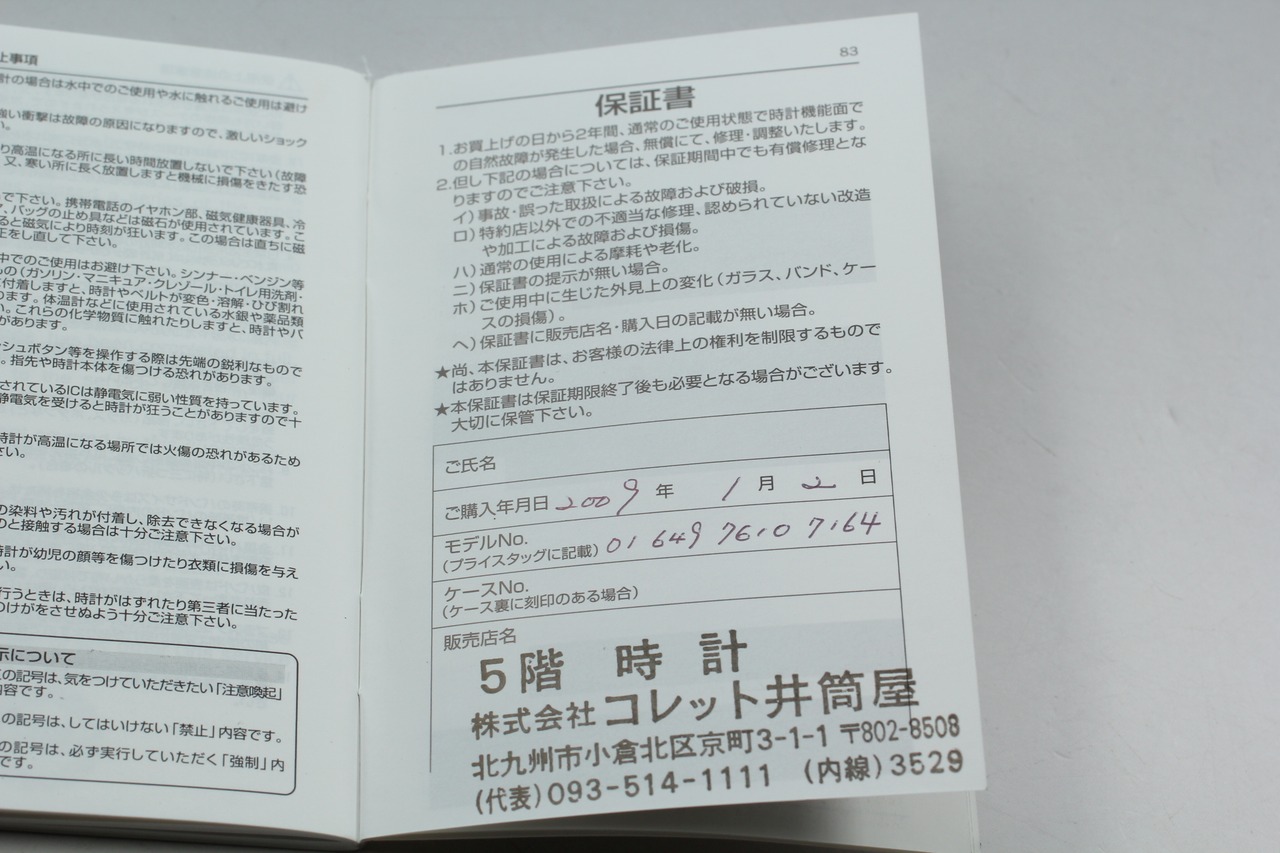 上事項
計の場合は水中でのご使用や水に触れるご使用は避け
強い衝撃は故障の原因になりますので、激しいショック
い。
り高温になる所に長い時間放置しないで下さい(故障
又、寒い所に長く放置しますと機械に損傷をきたす恐
で下さい。携帯電話のイヤホン部、磁気健康器具、冷
バッグの止め具などは磁石が使用されています。こ
ると磁気により時刻が狂います。この場合は直ちに磁
正をし直して下さい。
中でのご使用はお避け下さい。シンナー・ベンジン等
もの(ガソリン・マニキュア・クレゾール・トイレ用洗剤・
付着しますと、時計やベルトが変色・溶解・ひび割れ
ります。体温計などに使用されている水銀や薬品類
い。これらの化学物質に触れたりしますと、時計やバ
があります。
ッシュボタン等を操作する際は先端の鋭利なもので
。指先や時計本体を傷つける恐れがあります。
されているICは静電気に弱い性質を持っています。
静電気を受けると時計が狂うことがありますので十
時計が高温になる場所では火傷の恐れがあるため
さい。
の染料や汚れが付着し、除去できなくなる場合が
のと接触する場合は十分ご注意下さい。
時計が幼児の顔等を傷つけたり衣類に損傷を与え
い。
行うときは、時計がはずれたり第三者に当たった
のけがをさせぬよう十分ご注意下さい。
示について
の記号は、気をつけていただきたい「注意喚起」
内容です。
の記号は、してはいけない「禁止」内容です。
の記号は、必ず実行していただく「強制」内
です。
83
保証書
1.お買上げの日から2年間、通常のご使用状態で時計機能面で
の自然故障が発生した場合、無償にて、修理・調整いたします。
2.但し下記の場合については、保証期間中でも有償修理とな
りますのでご注意下さい。
イ)事故・誤った取扱による故障および破損。
ロ)特約店以外での不適当な修理、認められていない改造
や加工による故障および損傷。
ハ)通常の使用による摩耗や老化。
ニ)保証書の提示が無い場合。
ホ)ご使用中に生じた外見上の変化(ガラス、バンド、ケー
スの損傷)。
ヘ)保証書に販売店名・購入日の記載が無い場合。
★尚、本保証書は、お客様の法律上の権利を制限するもので
はありません。
★本保証書は保証期限終了後も必要となる場合がございます。
大切に保管下さい。
ご氏名
ご購入年月日 2009 年 1 月 2 日
モデルNo.
(プライスタッグに記載) 01 649 7610 7164
ケースNo.
(ケース裏に刻印のある場合)
販売店名
5階 時計
株式会社 コレット井筒屋
北九州市小倉北区京町3-1-1 〒802-8508
(代表)093-514-1111 (内線)3529